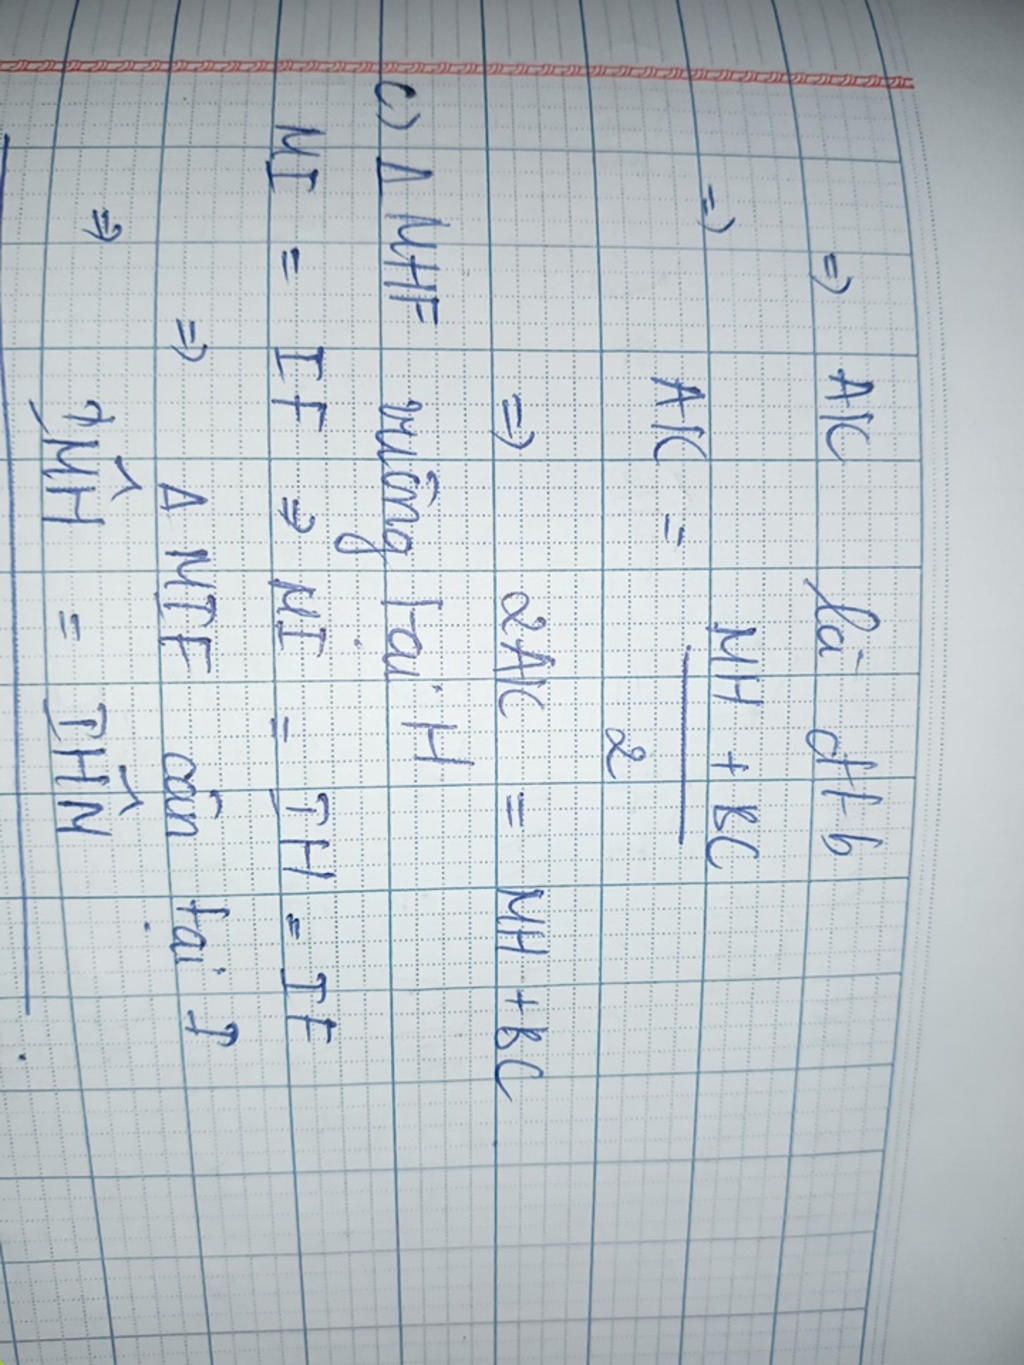 => AK là đtb
=> AK = MH + BC
2
=> 2AK = MH + BC
c) Δ MHF vuông tại H
MI = IF => MI = IH = IF
=> Δ MIF cân tại I
=> IMH = IHM